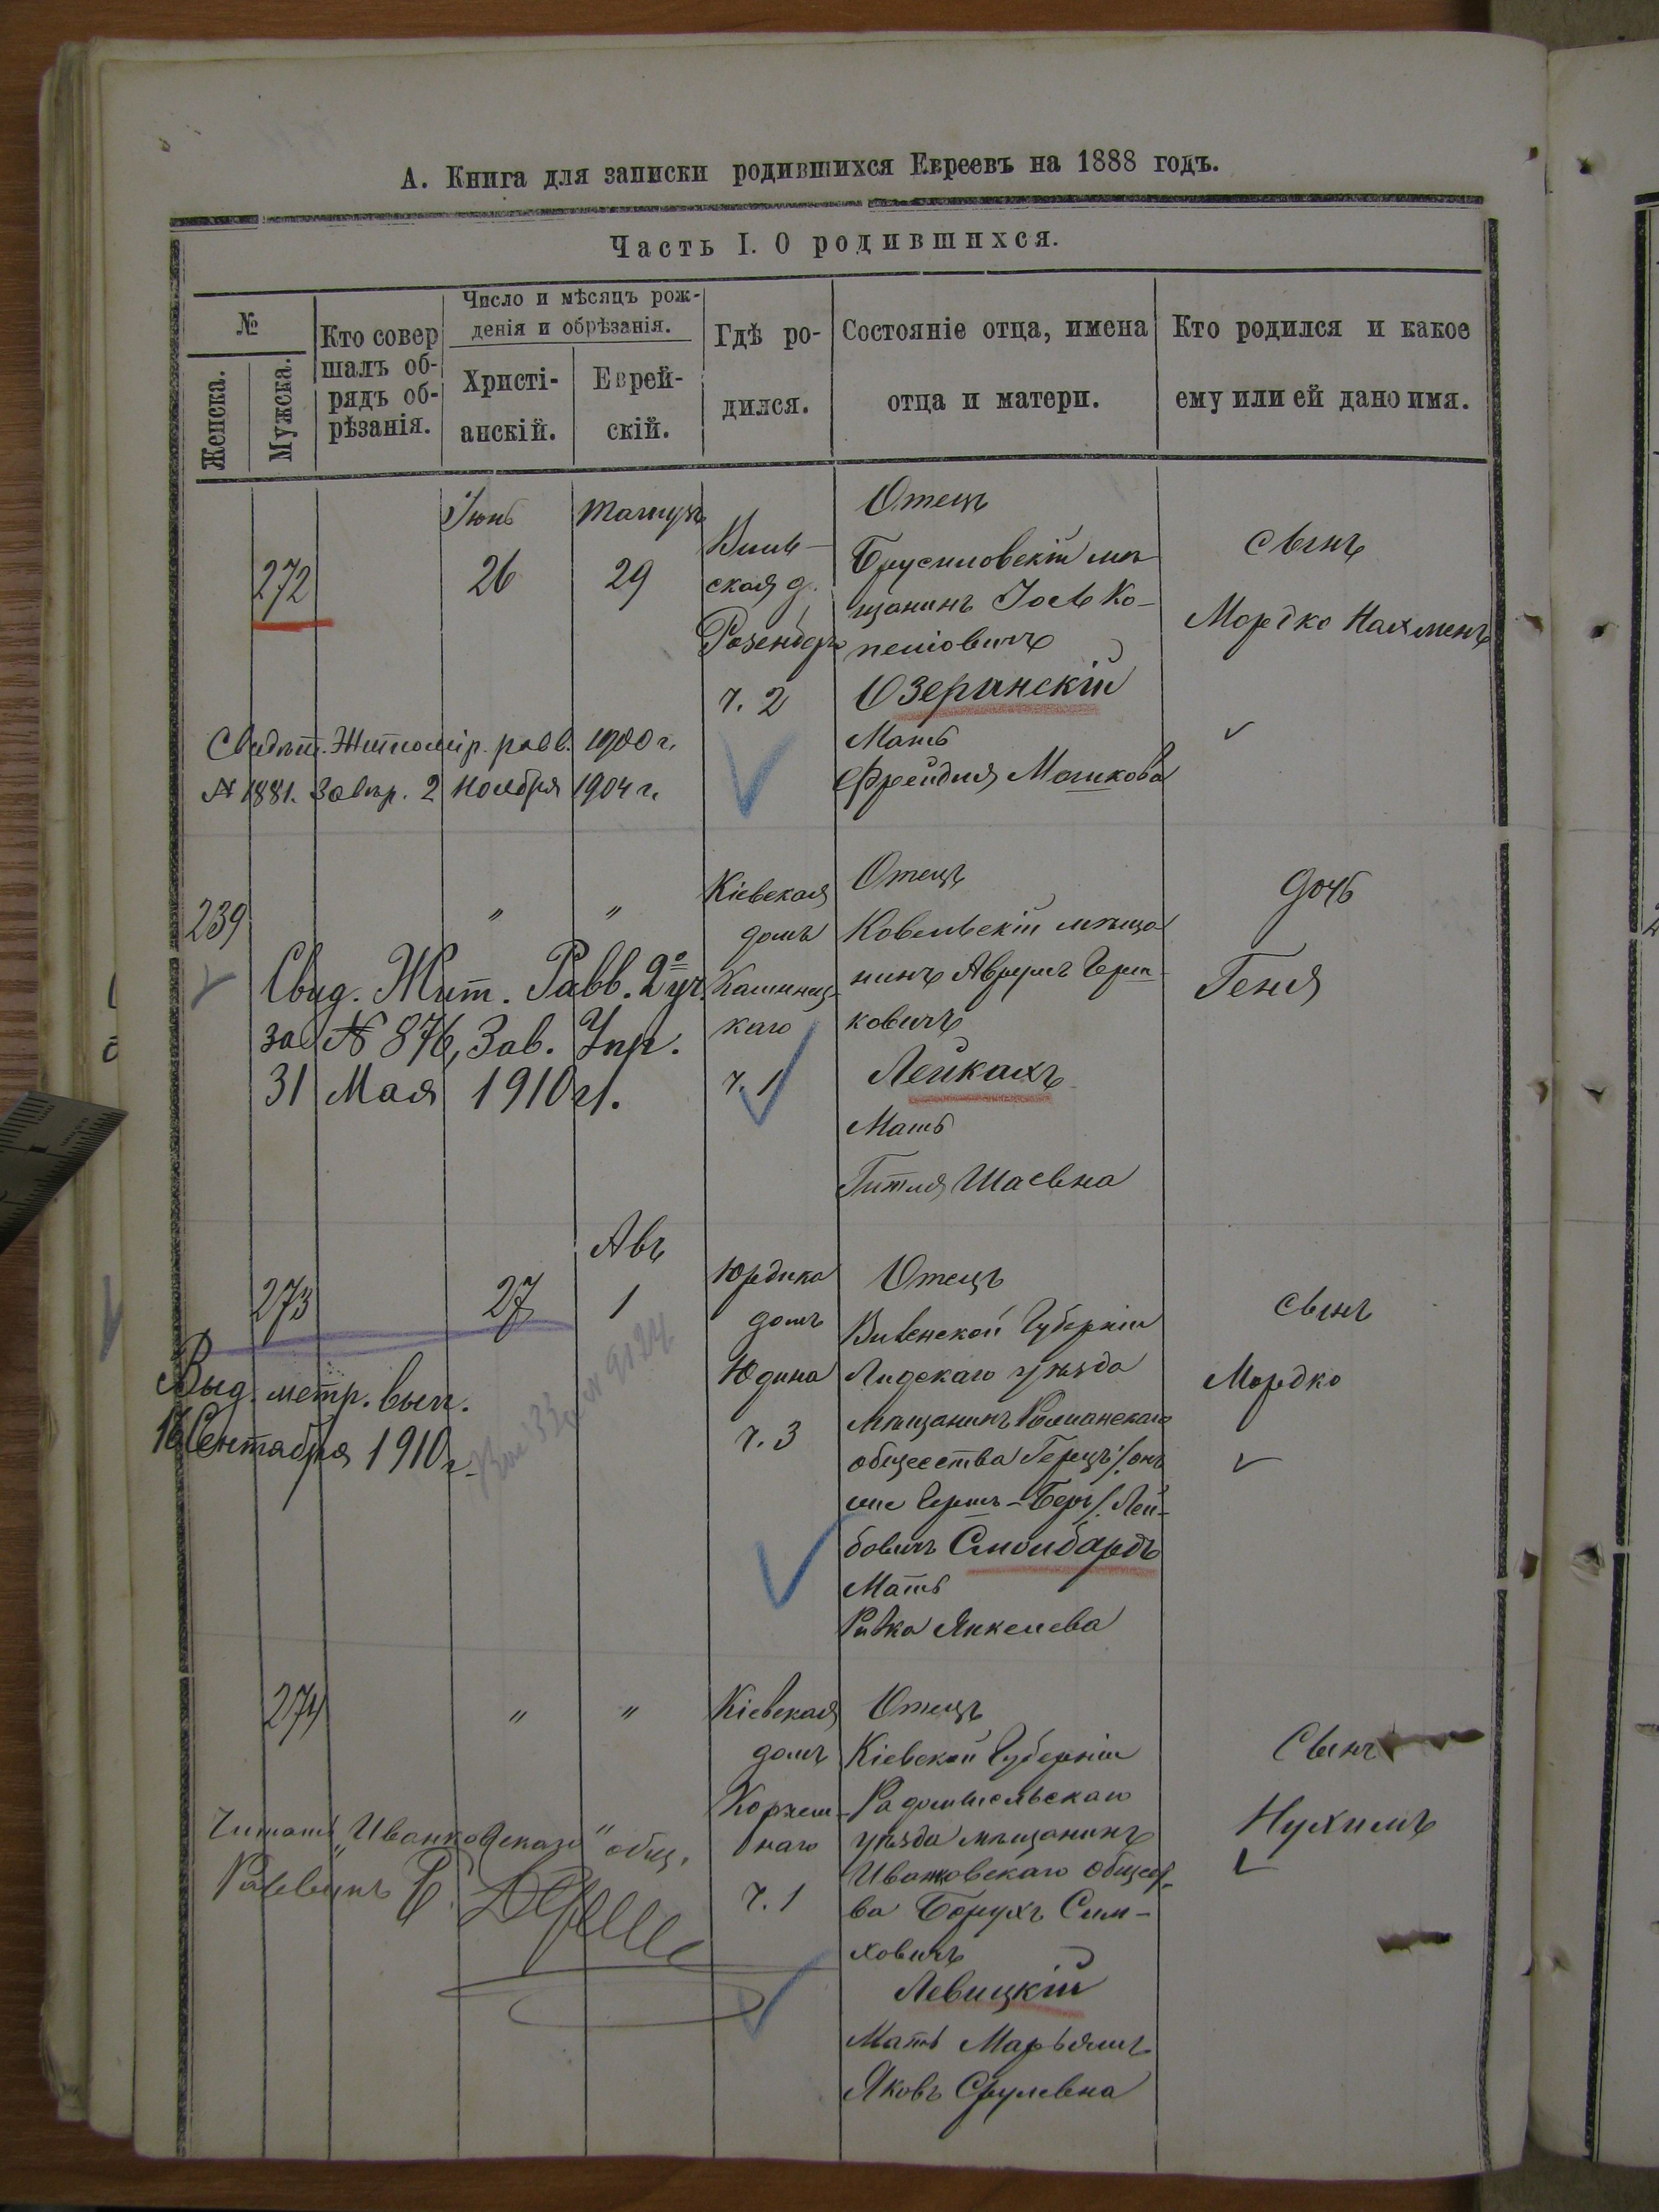 А. Книга для записки родившихся Евреевъ на 1888 годъ.
Часть I. О родившихся.
№
Женска.
Мужска.
Кто совер
шалъ об-
рядъ об-
рѣзанія.
Число и мѣсяцъ рож-
денія и обрѣзанія.
Христі-
анскій.
Еврей-
скій.
Гдѣ ро-
дился.
Состояніе отца, имена
отца и матери.
Кто родился и какое
ему или ей дано имя.
272
Іюнь
26
29
ская д.
Розенберг
ч. 2
Отецъ
Брусиловскій мѣ-
щанинъ Іось Ко-
пелiовичъ
Озерянскій
Мать
Фрейдля Мошкова
сынъ
Мордко Нахменъ
Свидѣт. Житомір. равв. 1900 г.
№ 1881. Завѣр. 2 Ноября 1904 г.
239
"
"
Кіевская
домъ
Каминец-
каго
ч. 1
Отецъ
Ковельскій мѣща
нинъ Аврумъ Герш-
ковичъ
Лейкахъ
Мать
Гитля Шаевна
дочь
Геня
Свид. Жит. Равв. 2º уч.
за № 876, Зав. Упр.
31 Мая 1910 г.
273
27
Авъ
1
Юрдика
домъ
Юдина
ч. 3
Отецъ
Виленской Губерніи
Лидскаго уѣзда
мѣщанинъ
общества Герцъ /онъ
же Гершъ-Беръ/ Лей-
бовичъ
Мать
Ривка Янкелева
сынъ
Мордко
Выд. метр. вып.
16 Сентября 1910 г.
274
"
"
Кіевская
домъ
наго
ч. 1
Отецъ
Кіевской Губерніи
Радомысльскаго
уѣзда мѣщанинъ
Иванковскаго общест-
ва Борухъ Сим-
ховичъ
Левицкій
Мать Марьямъ
Яковъ Срулевна
Сынъ
Нухимъ
Читать "Иванковскаго" общ.
Раввинъ